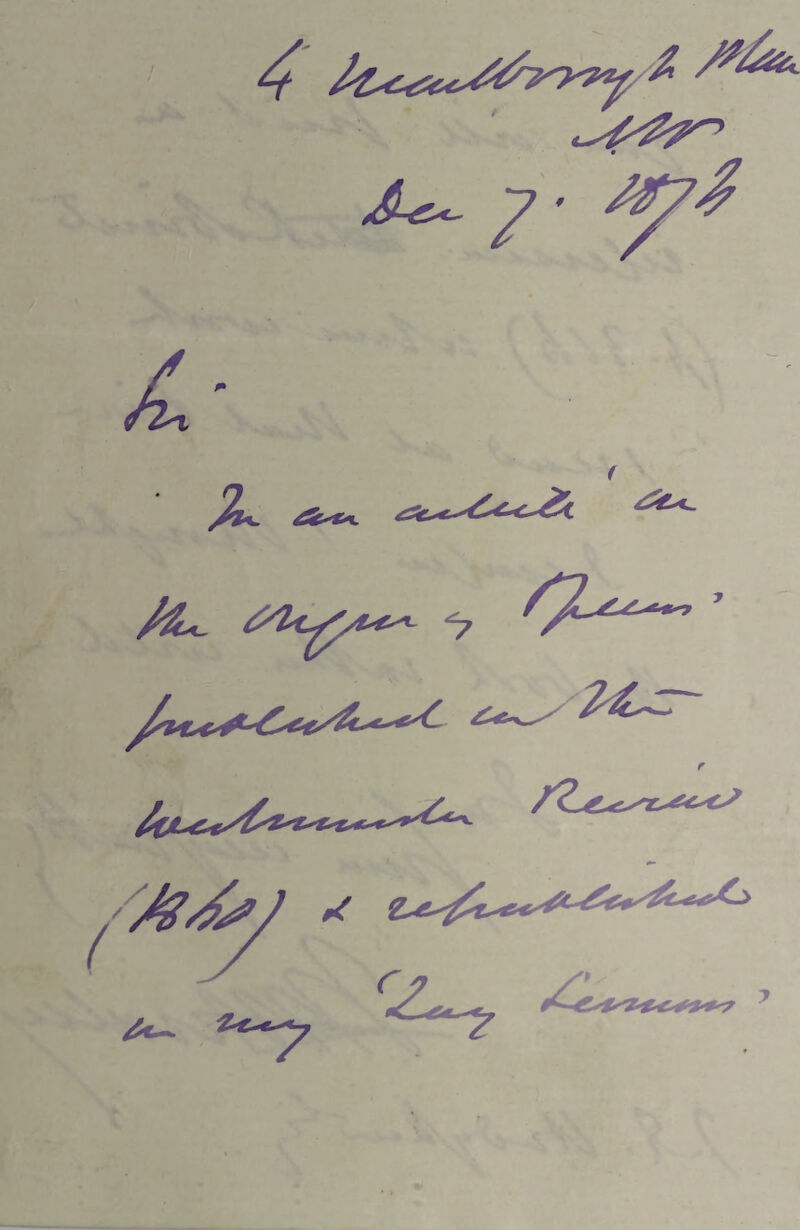 4 Marlborough Place
N.W.
Dec 7. 1876
Sir
In an article 'on
the Origin of Species'
published in the
Westminster Review
(1860) & republished
in my 'Lay Sermons'